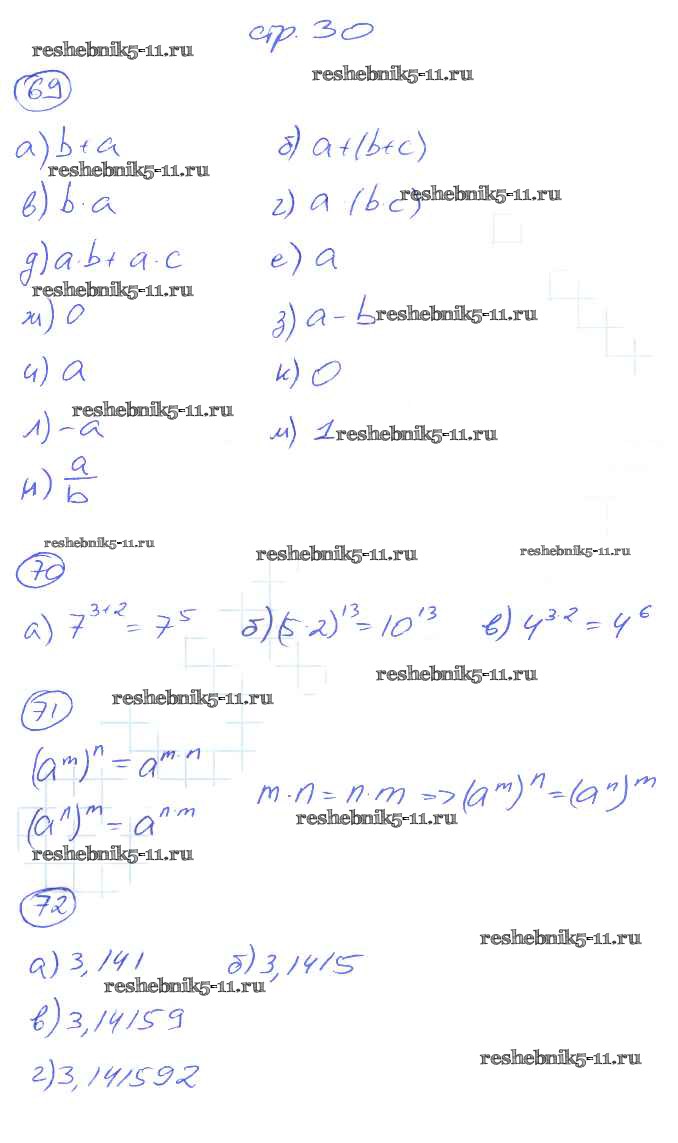 стр. 30
reshebnik5-11.ru
reshebnik5-11.ru
69
а) b+a б) a+(b+c)
reshebnik5-11.ru reshebnik5-11.ru
в) b·a г) a (b c)
д) a·b+a·c е) a
reshebnik5-11.ru
ж) 0 з) a-b reshebnik5-11.ru
и) a к) 0
reshebnik5-11.ru
л) -a м) 1 reshebnik5-11.ru
н) a/b
reshebnik5-11.ru reshebnik5-11.ru reshebnik5-11.ru
70
а) 7³⁺² = 7⁵ б) (5·2)¹³ = 10¹³ в) 4³·² = 4⁶
reshebnik5-11.ru
reshebnik5-11.ru
71
(aᵐ)ⁿ = aᵐ·ⁿ
m·n = n·m => (aᵐ)ⁿ = (aⁿ)ᵐ
reshebnik5-11.ru
(aⁿ)ᵐ = aⁿ·ᵐ
reshebnik5-11.ru
72
reshebnik5-11.ru
а) 3,141 б) 3,1415
reshebnik5-11.ru
в) 3,14159
reshebnik5-11.ru
г) 3,141592